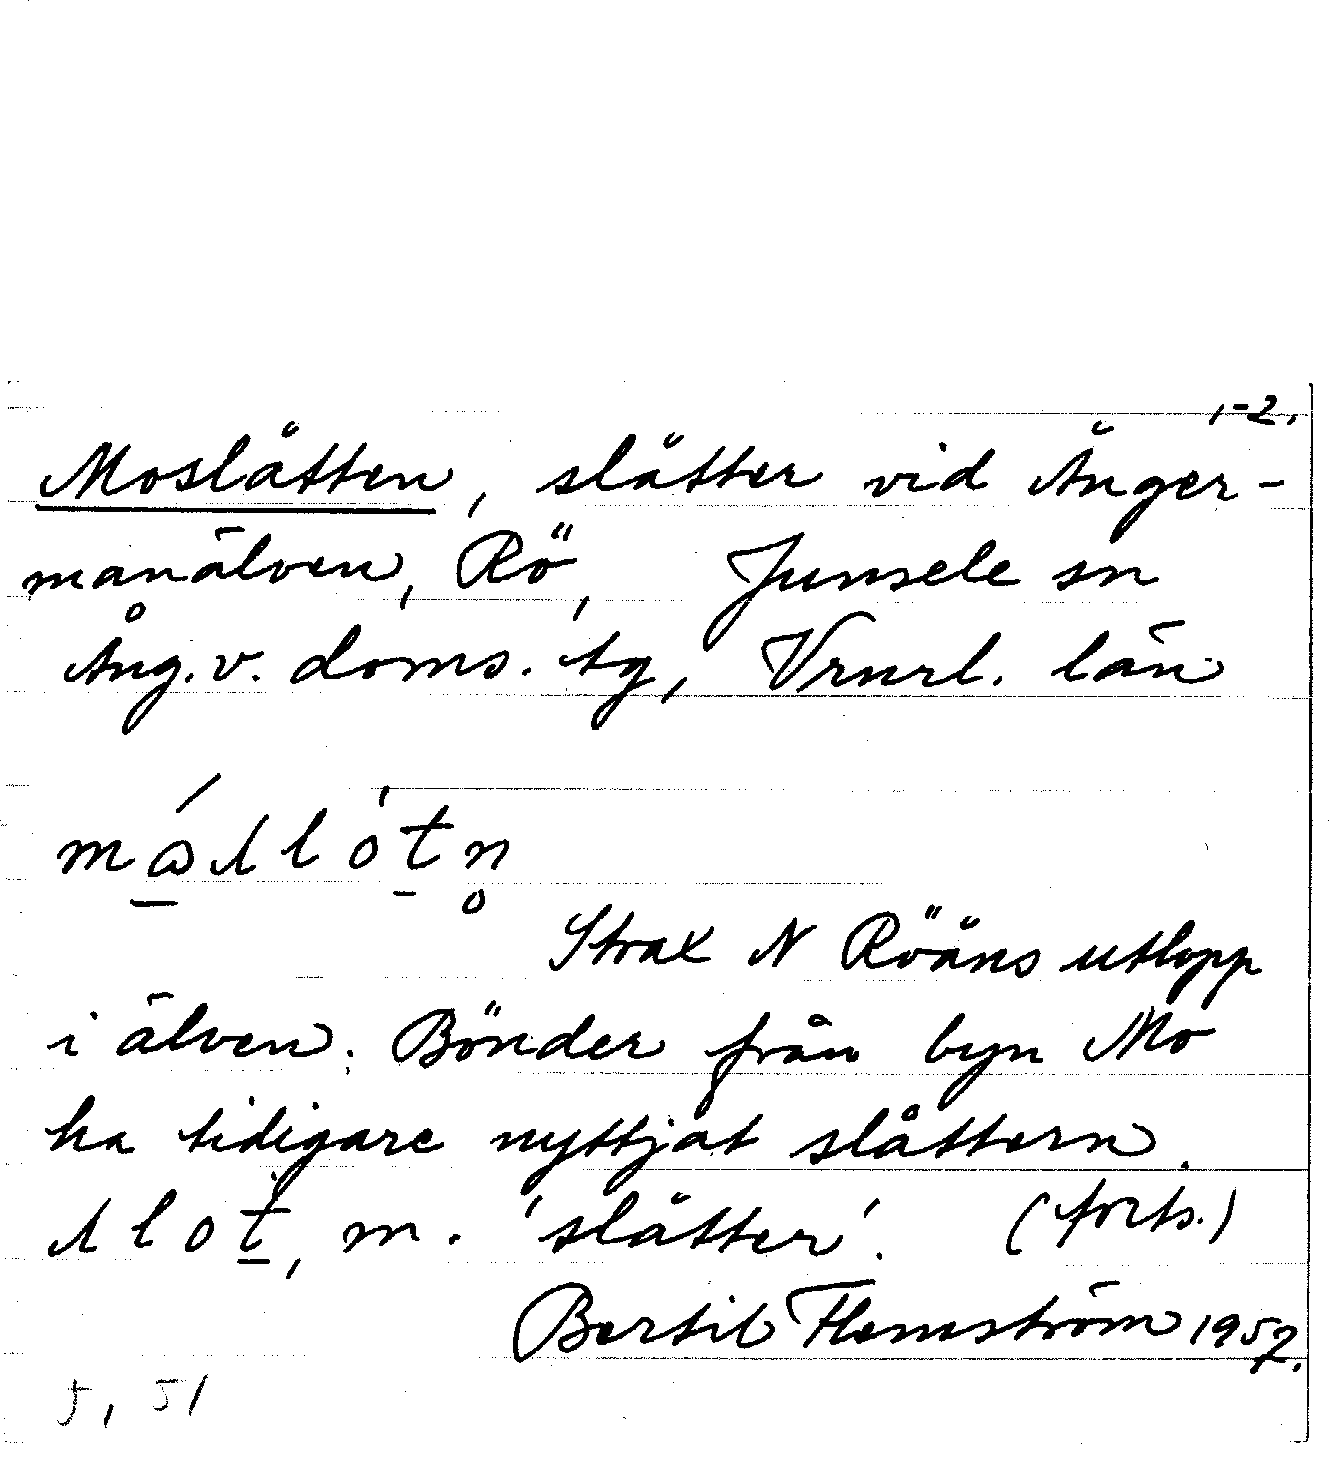 1-2.
Moslåtten, slåtter vid Ånger-
manälven, Rö, Junsele sn
Ång. v. doms. tg, Vrnrl. län
Strax N Röåns utlopp
i älven. Bönder från byn Mo
ha tidigare nyttjat slåttern.
slot, m. 'slåtter'. (forts.)
Bertil Flemström 1957.
5, 51